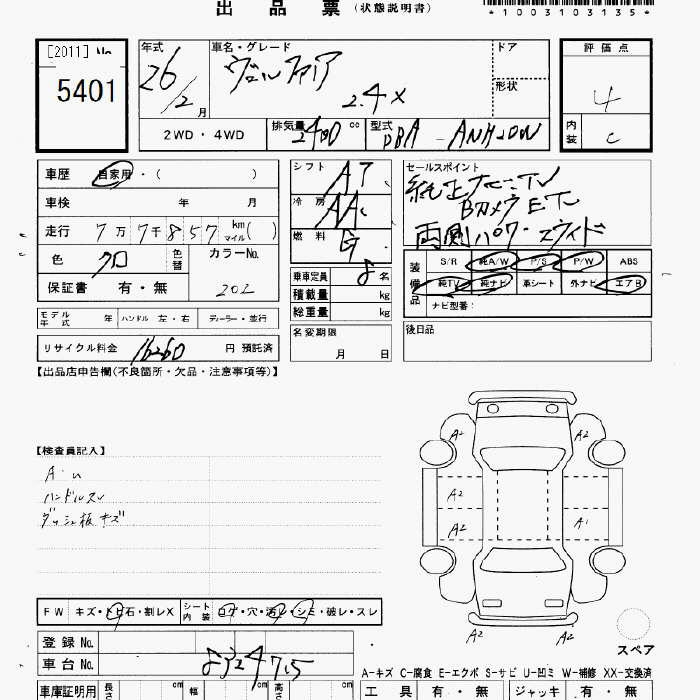 出品票(状態説明書)
*1003103135*
[2011] No
5401
年式
26/2 月
車名・グレード
ヴェルファイア
2.4 X
ドア
形状
2WD・4WD
排気量 2400 cc
型式 DBA - ANH20W
評価点
4
内装 C
車歴 自家用・( )
車検 年 月
走行 7万7千857 km マイル( )
色 クロ 色替
カラーNo.
202
保証書 有・無
シフト AT
冷房 AAC
燃料 G
乗車定員 8 名
積載量 kg
総重量 kg
セールスポイント
純正ナビ:TV
Bカメラ ETC
両側パワースライド
装備品
S/R 純A/W P/S P/W ABS
純TV 純ナビ 革シート 外ナビ エアB
ナビ型番:
モデル年式 年 ハンドル 左・右 ディーラー・並行
リサイクル料金 16260 円 預託済
名変期限
月 日
後日品
【出品店申告欄(不良箇所・欠品・注意事項等)】
【検査員記入】
A・U
ハンドルスレ
ダッシュ板キズ
A2 A2
A2
A2 A1
A2 A2
スペア
FW キズ・トビ石・割レX
シート内装 コゲ・穴・汚レ・シミ・破レ・スレ
登録No.
車台No. 8324715
A-キズ C-腐食 E-エクボ S-サビ U-凹ミ W-補修 XX-交換済
車庫証明用 長さ cm 幅 cm 高さ cm
工具 有・無 ジャッキ 有・無